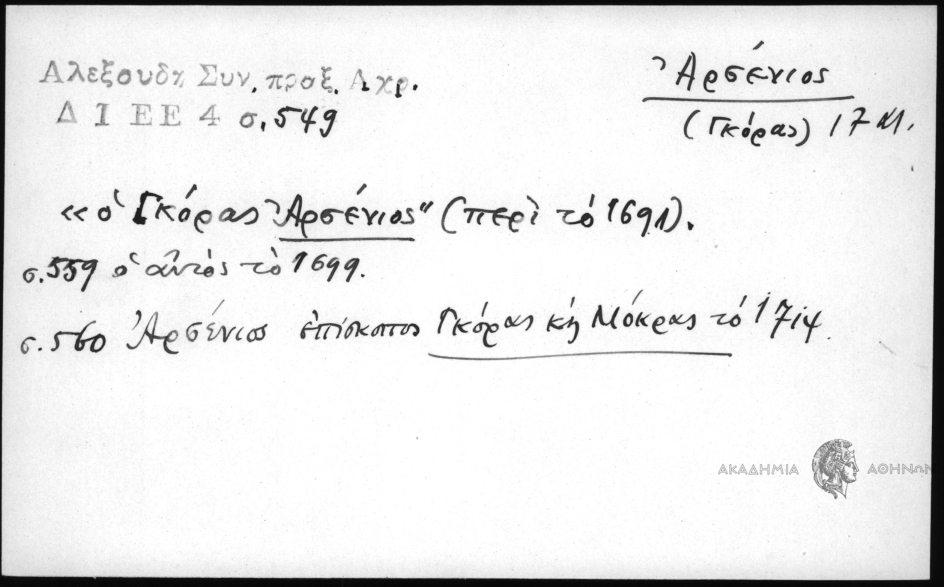 Αλεξουδη Συν. πραξ. Αχρ.
ΔΙΕΕ 4 σ. 549
Ἀρσένιος
(Γκόρας) 17 αι.
«ὁ Γκόρας Ἀρσένιος" (περὶ τὸ 1691).
σ. 559 ὁ αὐτὸς τὸ 1699.
σ. 560 Ἀρσένιος ἐπίσκοπος Γκόρας κὴ Μόκρας τὸ 1714.
ΑΚΑΔΗΜΙΑ ΑΘΗΝΩΝ